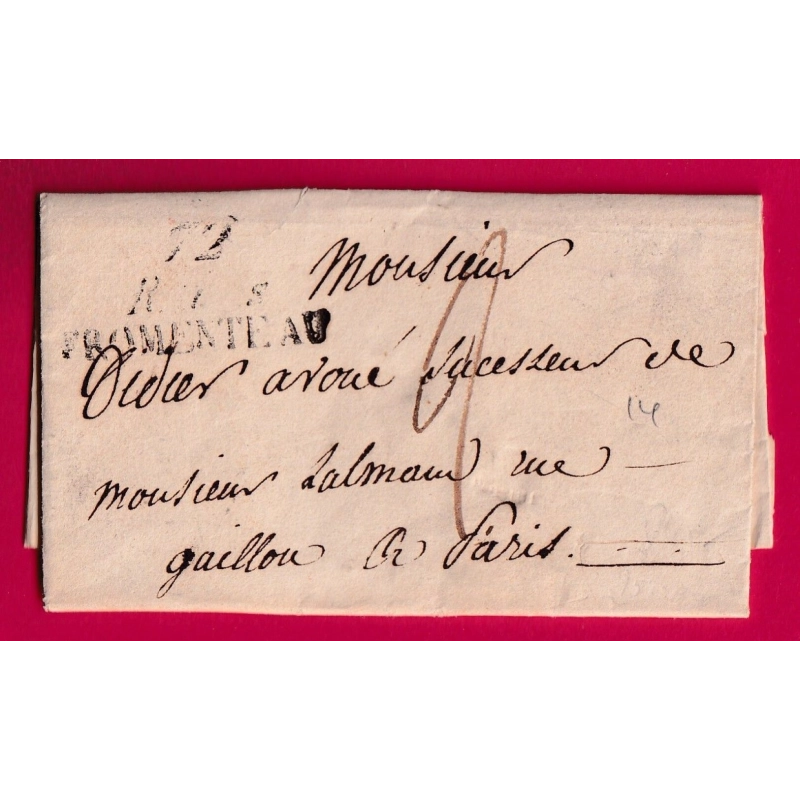 72
Ris
FROMENTEAU
Monsieur
Didier avoué sucesseur de
14
monsieur Lalmand rue
gaillon a Paris.